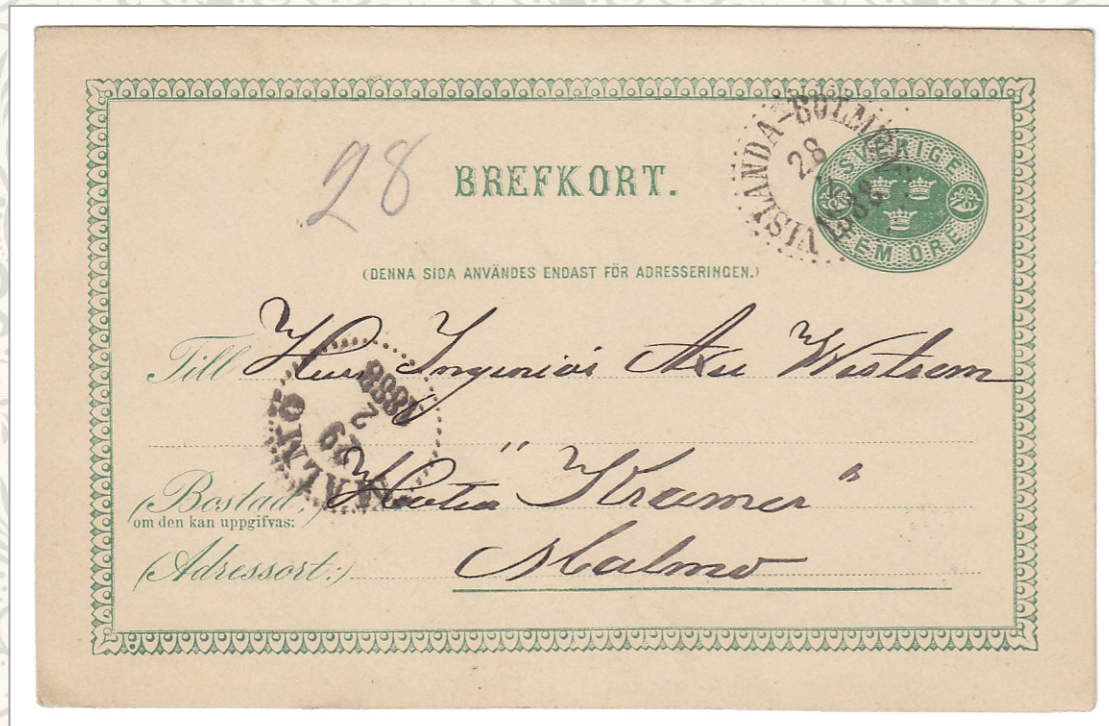 28
BREFKORT.
VISLANDA-BOLMEN
28
2
1888
SVERIGE
FEM ÖRE
(DENNA SIDA ANVÄNDES ENDAST FÖR ADRESSERINGEN.)
Till Herr Ingeniör Westrom
MALMÖ
29
2
1888
(Bostad,) Hotel "Kramer"
om den kan uppgifvas:
(Adressort:) Malmö